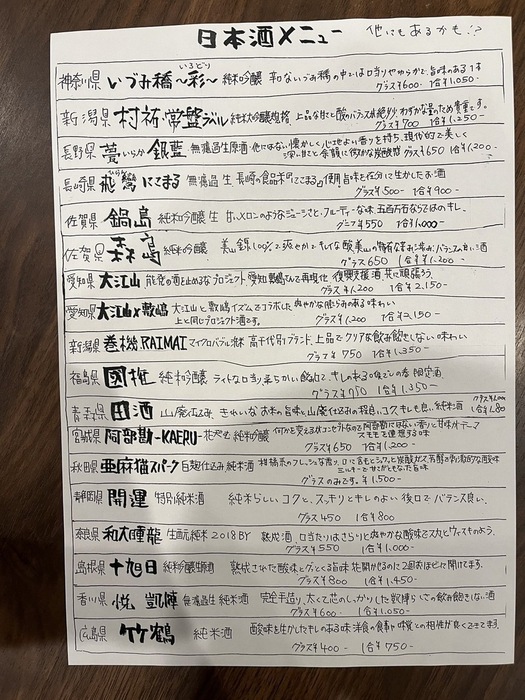 日本酒メニュー 他にもあるかも!?
いろどり
神奈川県 いづみ橋〜彩〜 純米吟醸 和ないづみ橋の中では口当りやわらかで、旨味のあるです
グラス¥600 1合¥1,050-
新潟県 村祐 常盤ラベル 純米大吟醸 上品な甘さと酸のバランスが絶妙 わずかな量のため貴重です。
グラス¥700 1合¥1,250-
長野県 いらか 銀藍 無濾過生原酒 他にはない懐かしく心地よい香りを持ち、現代的で美しく
甘さと余韻に微かな炭酸感 グラス¥650 1合¥1,200-
長崎県 飛鸞 にこまる 無濾過生 長崎の食品米『にこまる』使用 旨味を存分に生かしたお酒
グラス¥500- 1合¥900-
佐賀県 鍋島 純米吟醸 生 甘いメロンのようなジューシさと、フルーティーな味 五百万石ならではのキレ。
グラス¥550 1合¥1,000-
佐賀県 森嶋 純米吟醸 美山錦100%で爽やかで、キレイな酸 美山の バランスの良い酒
グラス650 1合¥1,200-
愛知県 大江山 能登の酒を止めるなプロジェクト、愛知 敷嶋さんで再現化 復興支援酒 共に頑張ろう。
グラス¥1,200 1合¥2,150-
愛知県 大江山×敷嶋 大江山と敷嶋イズムでコラボした 爽やかな膨らみのある味わい
上と同じプロジェクト酒です。 グラス¥1,200 1合¥2,150-
新潟県 巻機 RAIMAI マイクロバブル 高千代別ブランド、上品でクリアな飲み飽きしない味わい
グラス¥750 1合¥1,350-
福島県 國権 純米吟醸 ライトな口当り 柔らかい キレのある 限定商
グラス¥750 1合¥1,350-
青森県 田酒 山廃仕込み きれいなお米の旨味と山廃仕込みの コク、キレも良い 純米酒
宮城県 阿部勘-KAERU- 純米吟醸 何かを変える 阿部勘にはない香りと甘味がテーマ
スモモを連想する味
グラス¥650 1合¥1,200
秋田県 亜麻猫スパーク 白麹仕込み 純米酒 柑橘系のフレッシュな香り、口に含むとシュワっと炭酸ガス
グラスのみです。¥1,500-
静岡県 開運 特別純米酒 純米らしいコクと、スッキリとキレのよい後口でバランス良い。
グラス450 1合¥800
奈良県 生酛純米 2018BY 熟成酒、口当たりはさらりと爽やかな酸味でスカッとウィスキのよう。
グラス¥550 1合¥1,000-
島根県 十旭日 純米吟醸原酒 熟成された酸味とグッとくる旨味 花開かせるのに2週間ほどに開けてます。
グラス¥800 1合¥1,450-
香川県 悦 凱陣 無濾過生 純米酒 完全手造り、太くて芯のしっかりした凱陣らしさの飲み飽きしない酒
グラス¥600- 1合¥1,050-
広島県 竹鶴 純米酒 酸味を生かしたキレのある味 洋食の食事や味覚との相性が良くできてます。
グラス¥400- 1合¥750-